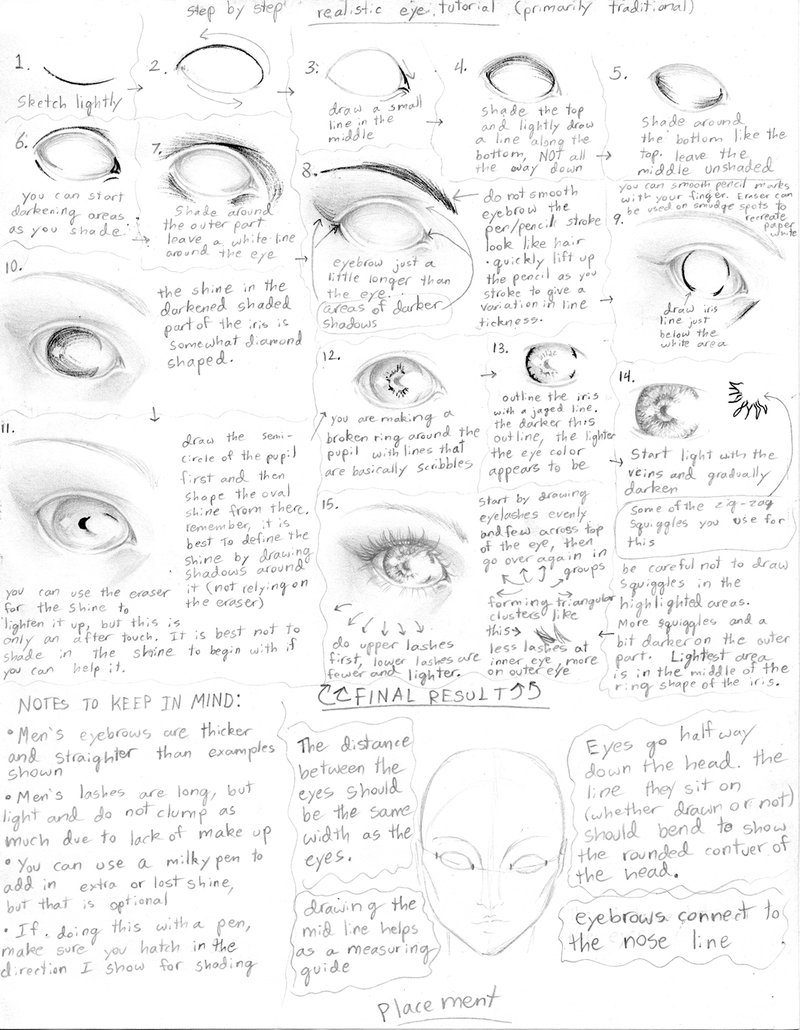 step by step realistic eye tutorial (primarily traditional)
1.
Sketch lightly
2.
3.
draw a small
line in the
middle
4.
Shade the top
and lightly draw
a line along the
bottom, NOT all
the way down
5.
Shade around
the bottom like the
top. leave the
middle unshaded
6.
you can start
darkening areas
as you shade
7.
Shade around
the outer part
leave a white line
around the eye
8.
eyebrow just a
little longer than
the eye.
areas of darker
shadows
do not smooth
eyebrow the
pen/pencil stroke
look like hair
• quickly lift up
the pencil as you
stroke to give a
variation in line
tickness.
you can smooth pencil marks
with your finger. Eraser can
be used on smudge spots to
recreate
paper
white
9.
draw iris
line just
below the
white area
10.
the shine in the
darkened shaded
part of the iris is
somewhat diamond
shaped.
11.
draw the semi-
circle of the pupil
first and then
shape the oval
shine from there.
remember, it is
best to define the
shine by drawing
shadows around
it (not relying on
the eraser)
you can use the eraser
for the shine to
lighten it up, but this is
only an after touch. It is best not to
shade in the shine to begin with if
you can help it.
12.
you are making a
broken ring around the
pupil with lines that
are basically scribbles
13.
outline the iris
with a jaged line.
the darker this
outline, the lighter
the eye color
appears to be
14.
Start light with the
veins and gradually
darken
Some of the zig-zag
squiggles you use for
this
be careful not to draw
squiggles in the
highlighted areas.
More squiggles and a
bit darker on the outer
part. Lightest area
is in the middle of the
ring shape of the iris.
15.
start by drawing
eyelashes evenly
and few across top
of the eye, then
go over again in
groups
forming triangular
clusters like
this
less lashes at
inner eye, more
on outer eye
do upper lashes
first, lower lashes are
fewer and lighter.
FINAL RESULT
NOTES TO KEEP IN MIND:
• Men's eyebrows are thicker
and straighter than examples
shown
• Men's lashes are long, but
light and do not clump as
much due to lack of make up
• You can use a milky pen to
add in extra or lost shine,
but that is optional
• If doing this with a pen,
make sure you hatch in the
direction I show for shading
The distance
between the
eyes should
be the same
width as the
eyes.
drawing the
mid line helps
as a measuring
guide
Eyes go halfway
down the head. the
line they sit on
(whether drawn or not)
should bend to show
the rounded contuer of
the head.
eyebrows connect to
the nose line
placement